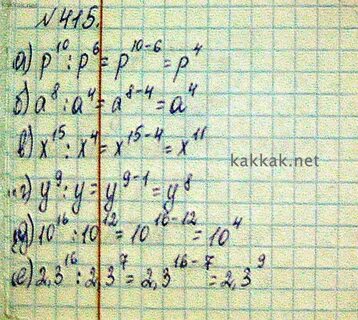 №415.
а) p¹⁰ : p⁶ = p¹⁰⁻⁶ = p⁴
б) a⁸ : a⁴ = a⁸⁻⁴ = a⁴
в) x¹⁵ : x⁴ = x¹⁵⁻⁴ = x¹¹
kakkak.net
г) y⁹ : y = y⁹⁻¹ = y⁸
д) 10¹⁶ : 10¹² = 10¹⁶⁻¹² = 10⁴
е) 2,3¹⁶ : 2,3⁷ = 2,3¹⁶⁻⁷ = 2,3⁹